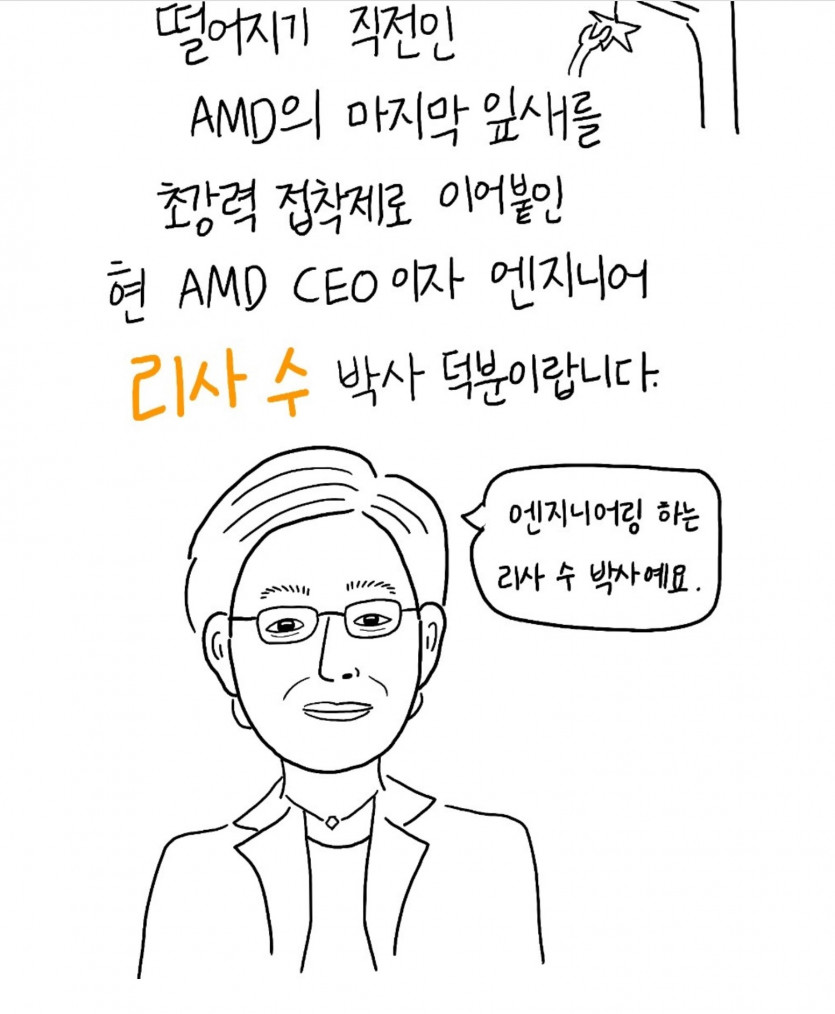 떨어지기 직전인
AMD의 마지막 잎새를
초강력 접착제로 이어붙인
현 AMD CEO이자 엔지니어
리사 수 박사 덕분이랍니다.
엔지니어링 하는
리사 수 박사예요.